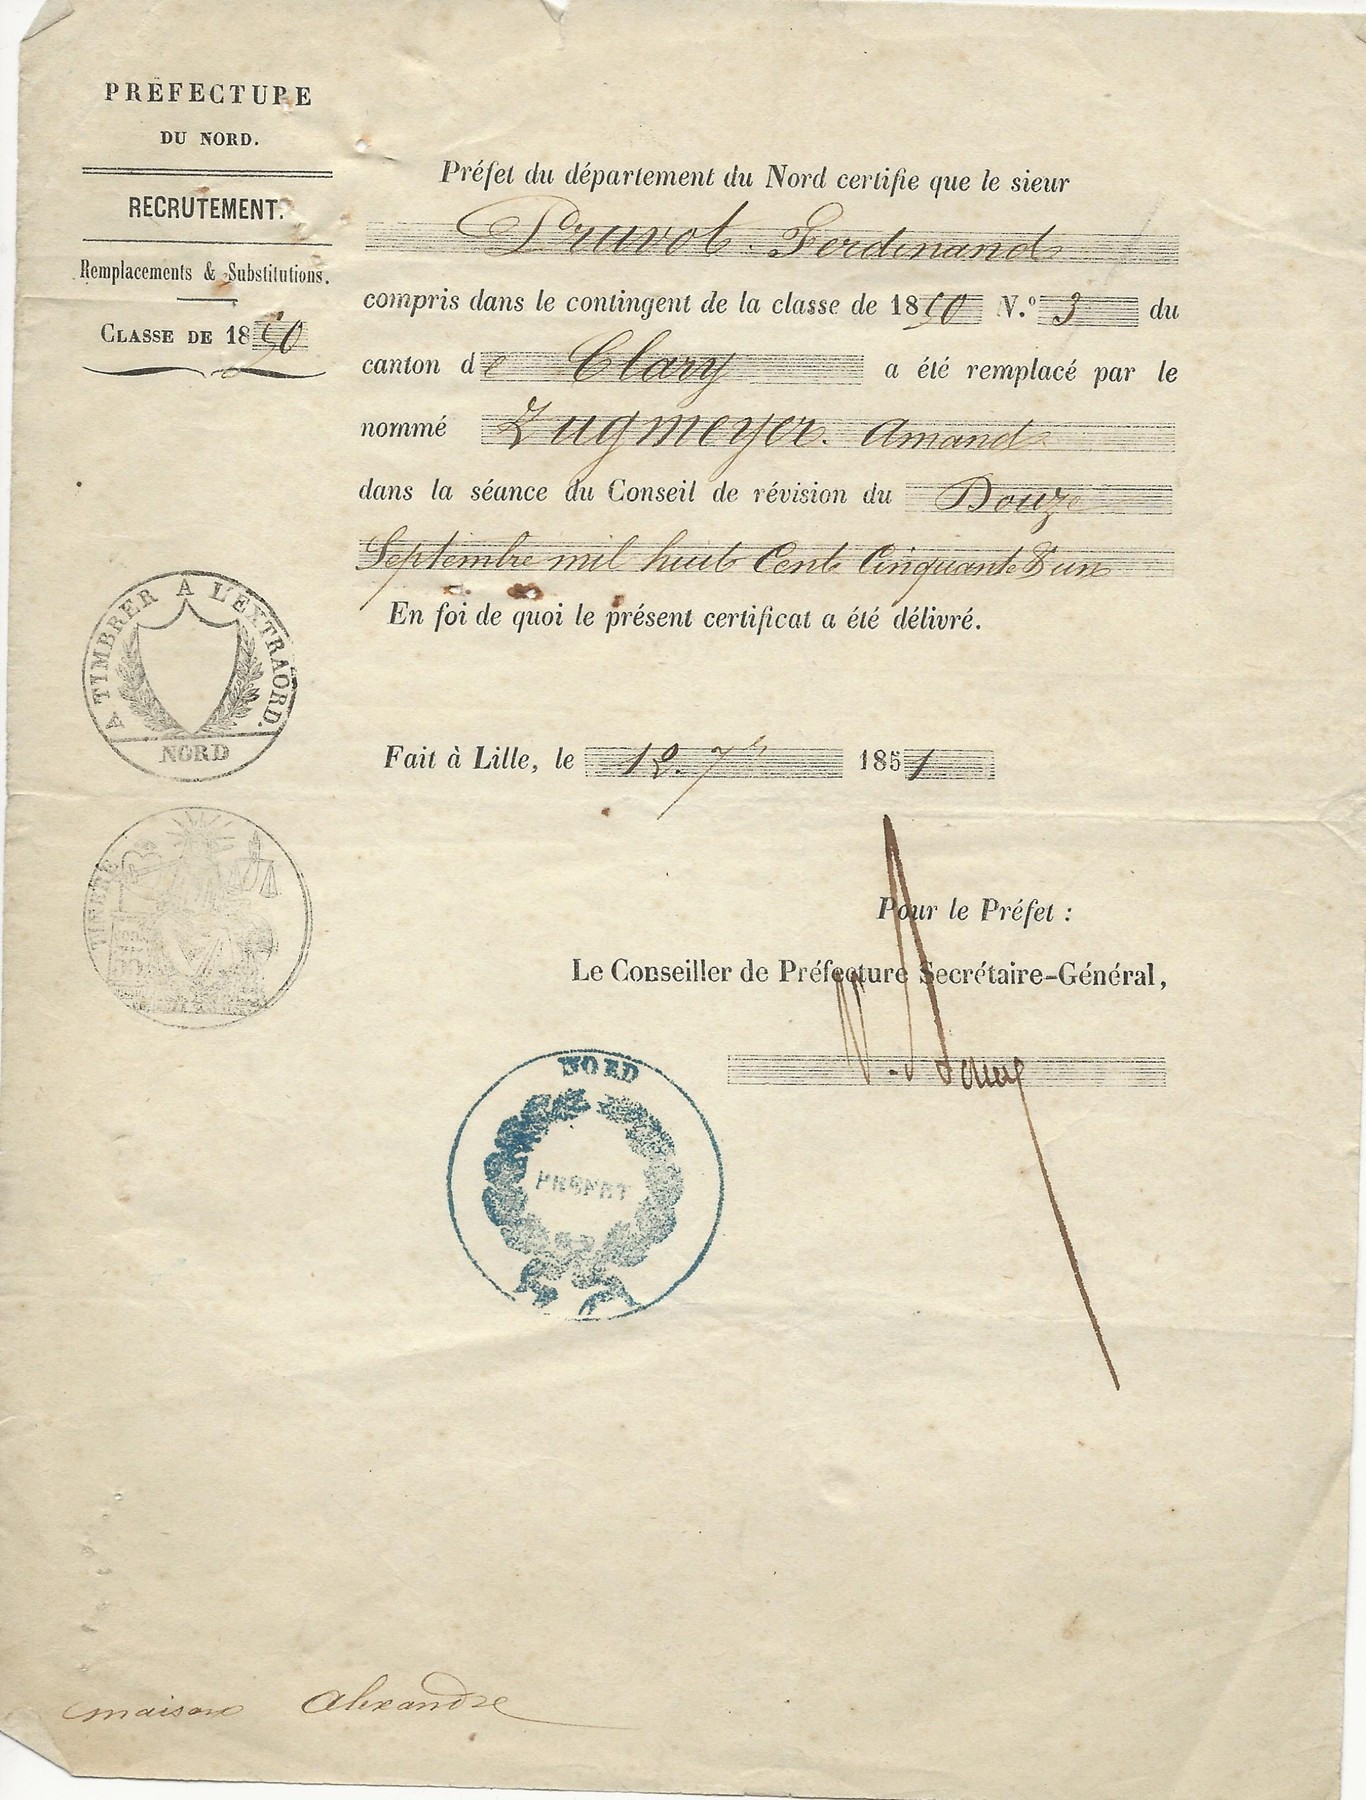 PRÉFECTURE
DU NORD.
RECRUTEMENT.
Remplacements & Substitutions.
CLASSE DE 1850
Préfet du département du Nord certifie que le sieur
Pruvot Ferdinand
compris dans le contingent de la classe de 1850 N.º 3 du
canton de Clary a été remplacé par le
nommé Zugmeyer. Amand
dans la séance du Conseil de révision du Douze
Septembre mil huit Cent Cinquante & un
En foi de quoi le présent certificat a été délivré.
A TIMBRER A L'EXTRAORD.
NORD
Fait à Lille, le 12. 7bre 1851
TIMBRE
Pour le Préfet :
Le Conseiller de Préfecture Secrétaire-Général,
NORD
PRÉFET
maison Alexandre